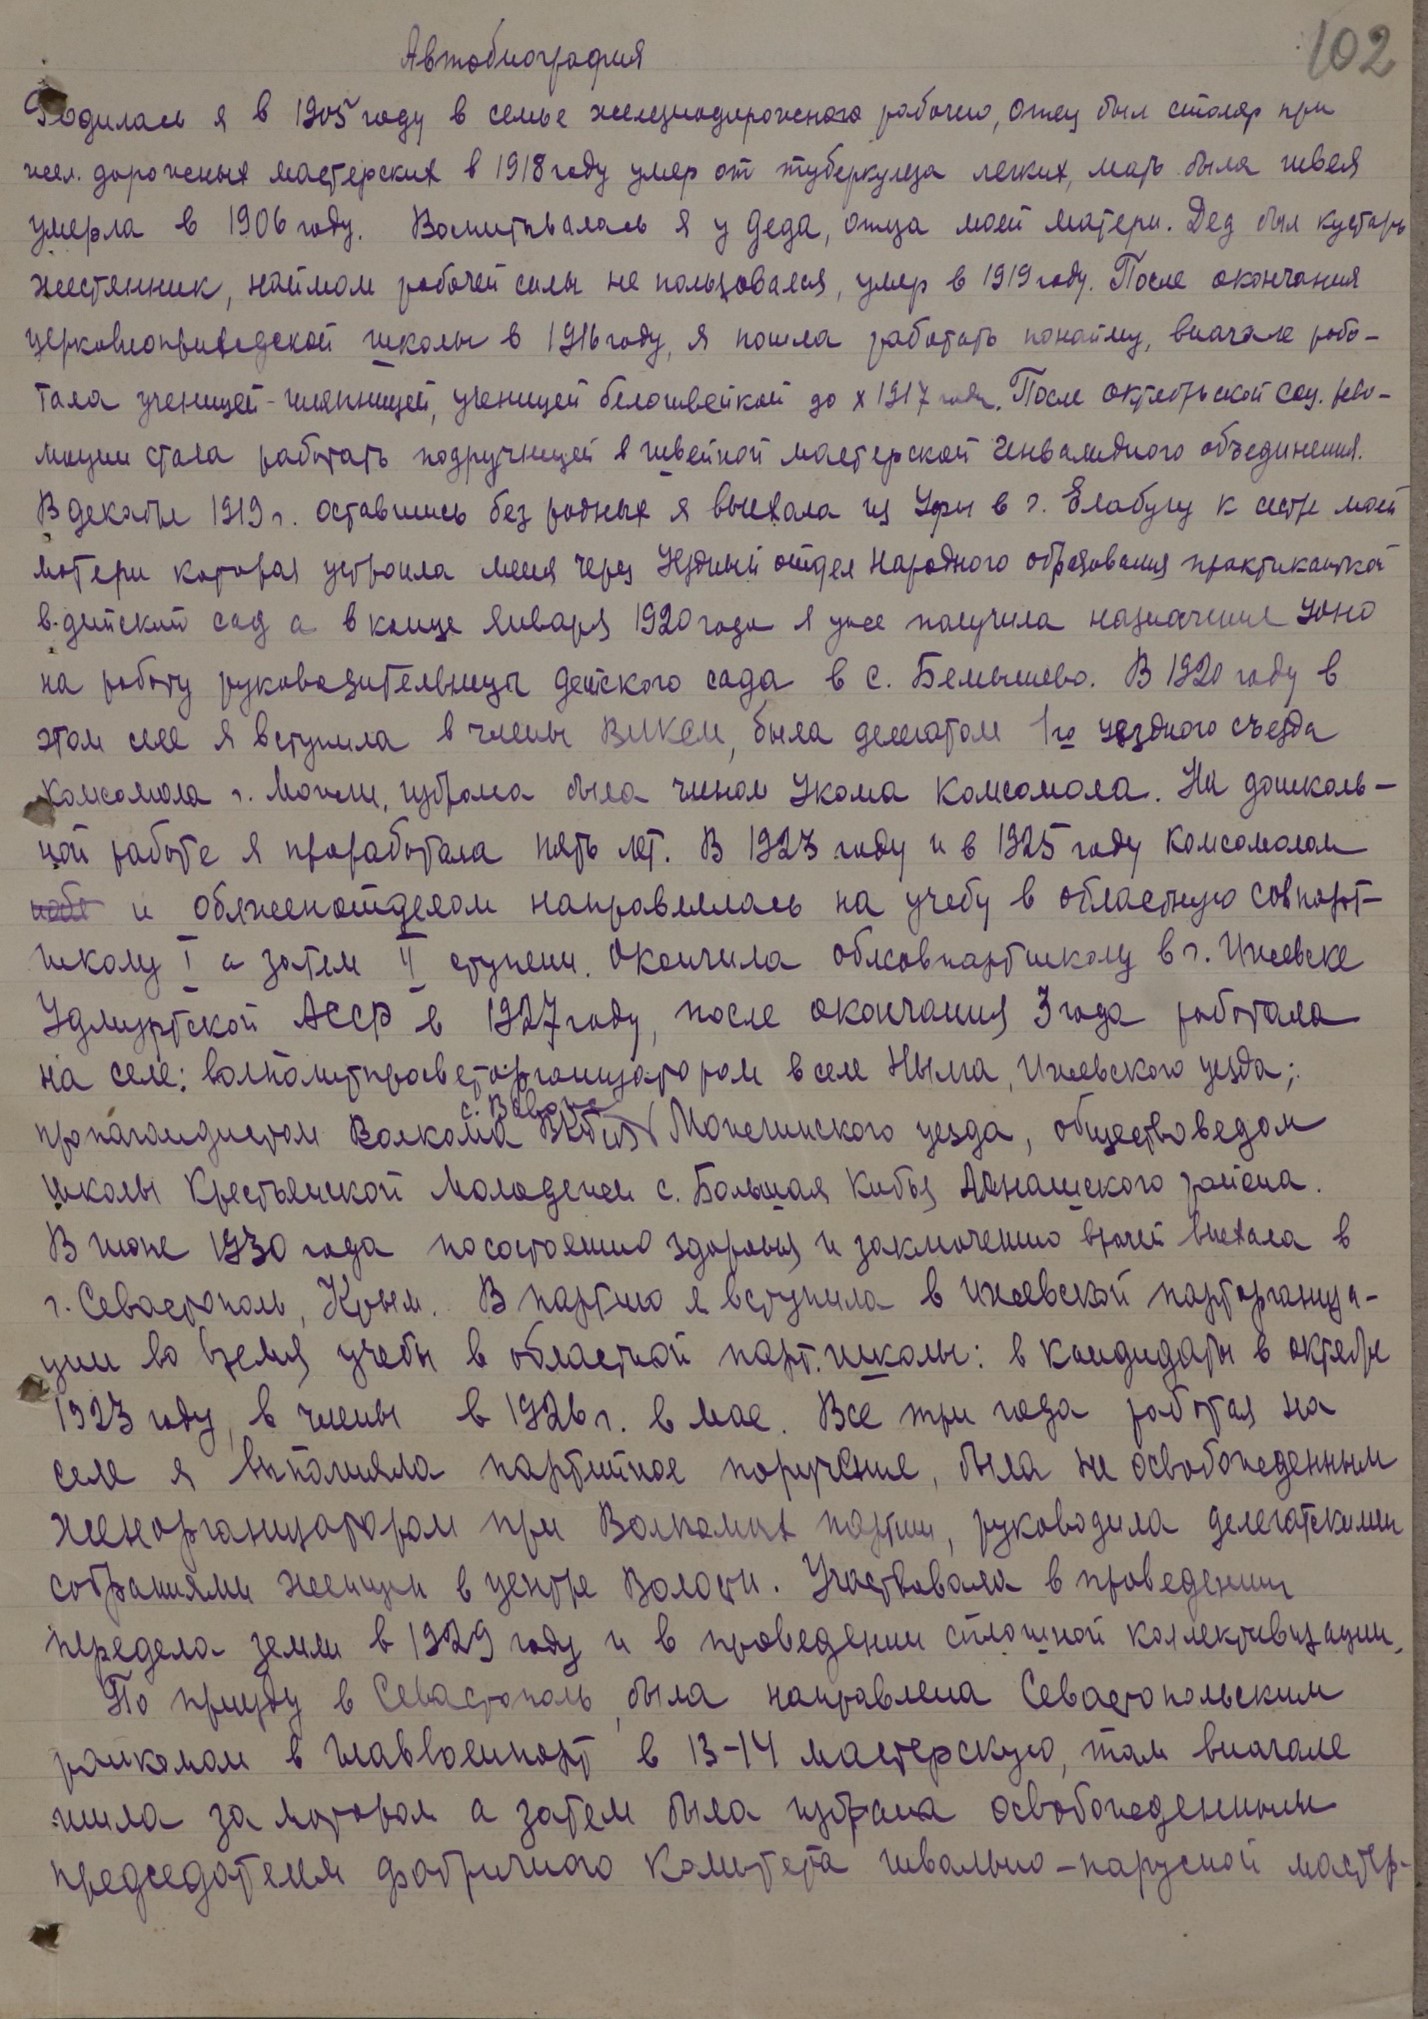 102
Автобиография
Родилась я в 1905 году в семье железнодорожного рабочего, отец был столяр при
жел. дорожных мастерских в 1918 году умер от туберкулеза легких, мать была швея
умерла в 1906 году. Воспитывалась я у деда, отца моей матери. Дед был кустарь
жестянник, наймом рабочей силы не пользовался, умер в 1919 году. После окончания
церковноприходской школы в 1916 году, я пошла работать понайму, вначале рабо-
тала ученицей-шляпницей, ученицей белошвейкой до X 1917 года. После октябрьской соц. рево-
люции стала работать подручницей в швейной мастерской Инвалидного объединения.
В декабре 1919 г. оставшись без родных я выехала из Уфы в г. Елабугу к сестре моей
матери которая устроила меня через Уездный отдел Народного образования практиканткой
в детский сад а в конце января 1920 года я уже получила назначение УОНО
на работу руководительницы детского сада в с. Бемышево. В 1920 году в
этом селе я вступила в члены ВЛКСМ, была делегатом 1го уездного съезда
Комсомола г. Можги, избрана была членом Укома Комсомола. На дошколь-
ной работе я проработала пять лет. В 1923 году и в 1925 году Комсомолом
и обженотделом направлялась на учебу в областную совпарт-
школу I а затем II ступени. Окончила облсовпартшколу в г. Ижевске
Удмуртской АССР в 1927 году, после окончания 3 года работала
на селе: волполитпросветорганизатором в селе Нылга, Ижевского уезда;
пропагандистом Волкома с. Вавож Можгинского уезда, обществоведом
школы Крестьянской Молодежи с. Большая Кибья Алнашского района.
В июне 1930 года посостоянию здоровья и заключению врачей выехала в
г. Севастополь, Крым. В партию я вступила в Ижевской парторганиза-
ции во время учебы в областной парт. школы: в кандидаты в октябре
1923 году, в члены в 1926 г. в мае. Все три года работая на
селе я выполняла партийное поручение, была не освобожденным
женорганизатором при Волкомах партии, руководила делегатскими
собраниями женщин в центре Волости. Участвовала в проведении
передела земли в 1929 году и в проведении сплошной коллективизации.
По приезду в Севастополь, была направлена Севастопольским
райкомом в Главвоенпорт в 13-14 мастерскую, там вначале
шила за мотором а затем была избрана освобожденным
председателем фабричного Комитета швально-парусной мастер-